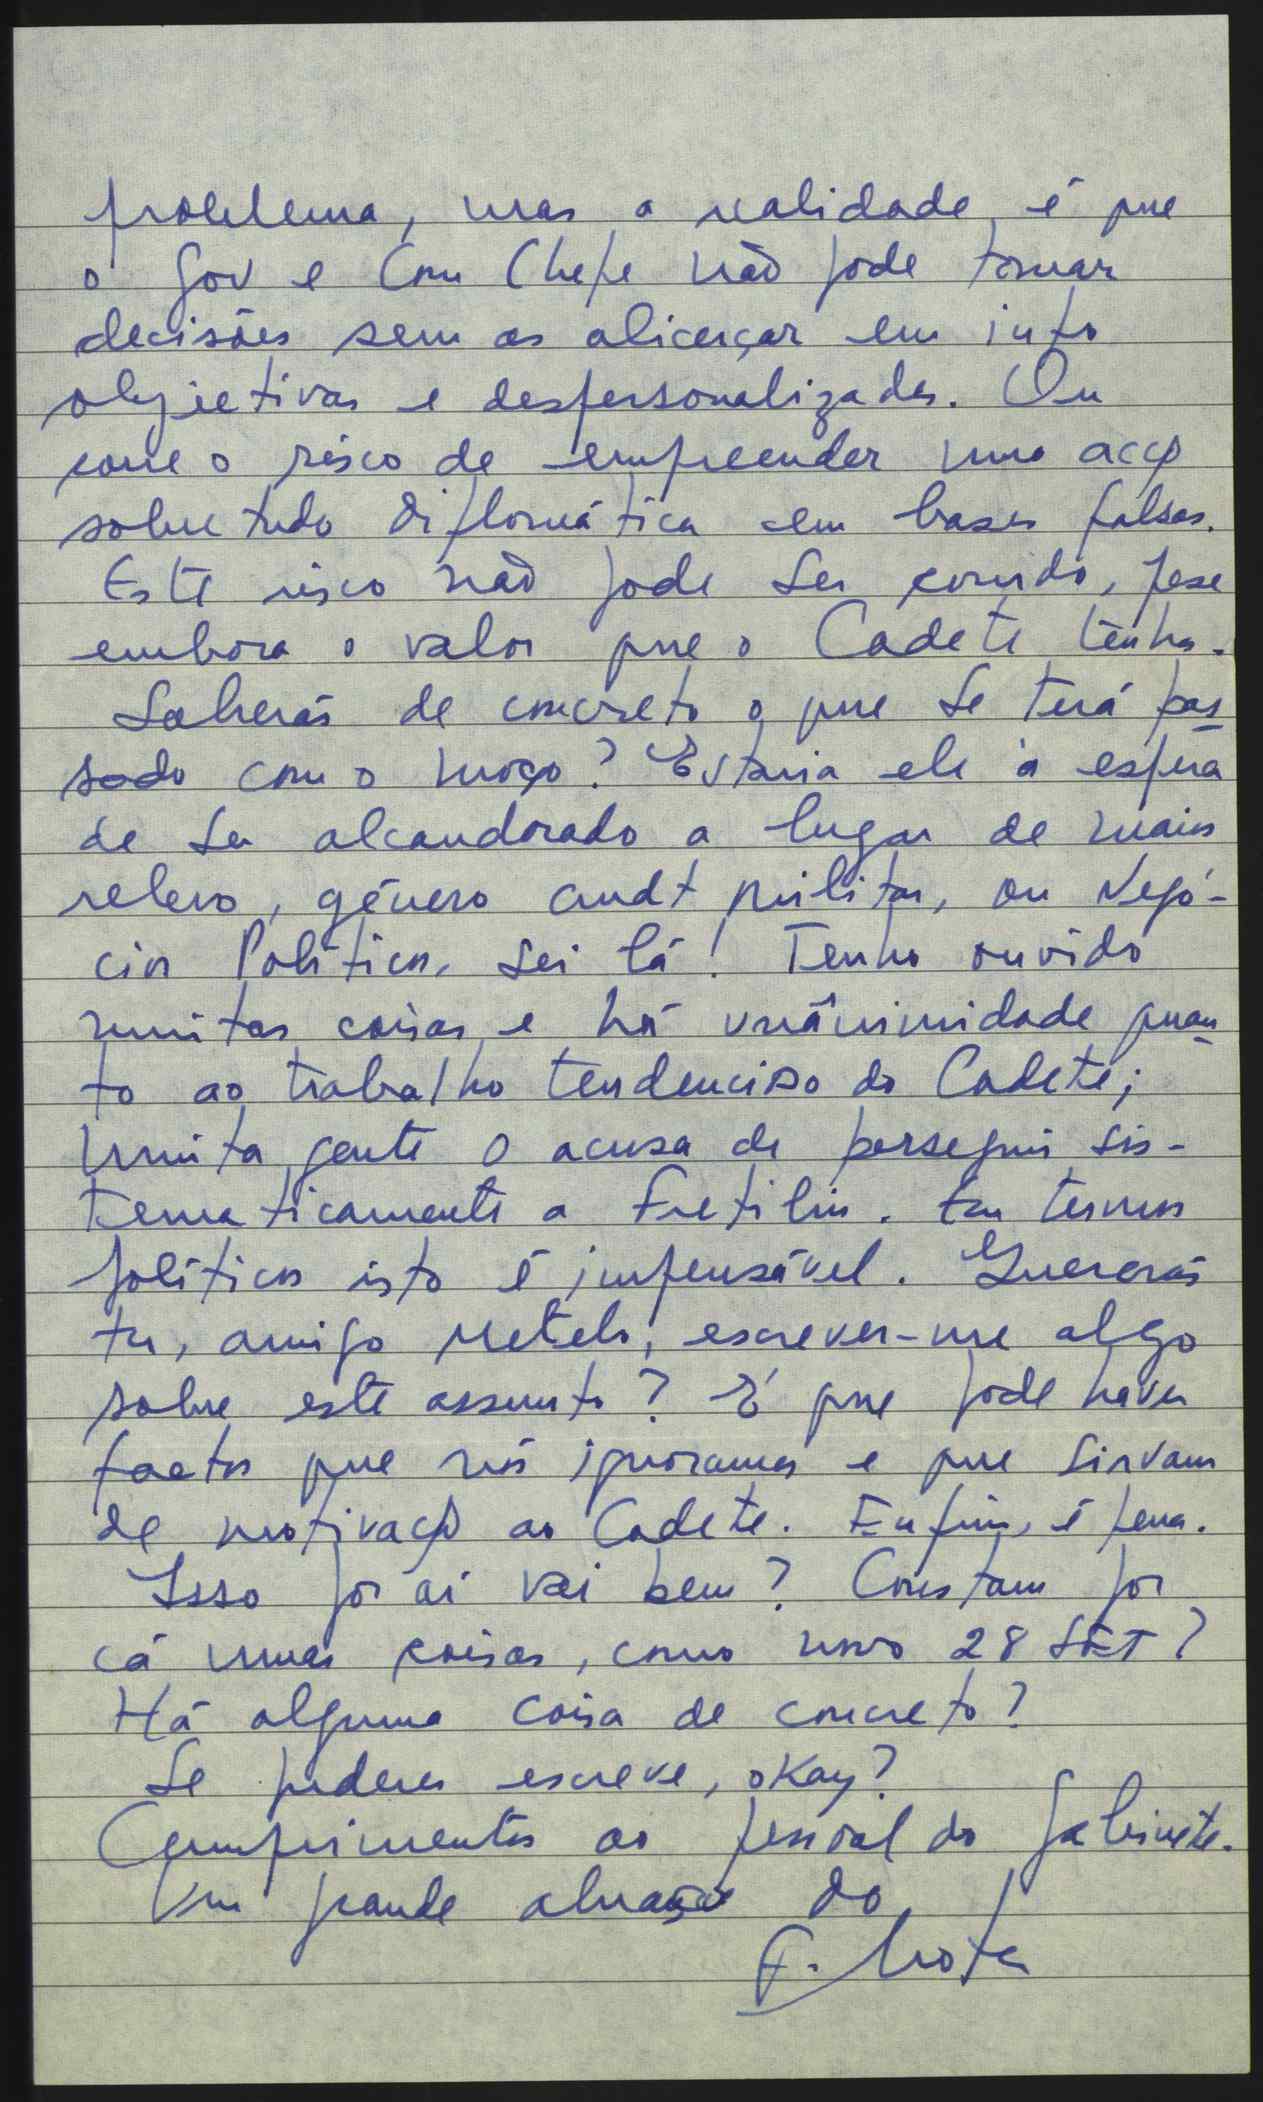 problema, mas a realidade, é que
o Gov e Com Chefe não pode tomar
decisões sem as alicerçar em info
objectivas e despersonalizadas. Ou
corre o risco de empreender uma acçº
sobretudo diplomática em bases falsas.
Este risco não pode ser corrido, pese
embora o valor que o Cadete tenha.
Saberás de concreto o que se terá pas
sado com o moço? Estaria ele à espera
de ser alcandorado a lugar de mais
relevo, género cmdt militar, ou Negó-
cios Políticos, sei lá! Tenho ouvido
muitas coisas, e há unânimidade quan
to ao trabalho tendencioso do Cadete;
Muita gente o acusa de perseguir sis-
tematicamente a Fretilin. Em termos
políticos isto é impensável. Quererás
tu, amigo Metelo, escrever-me algo
sobre este assunto? É que pode haver
factos que nós ignoramos e que sirvam
de motivaçº ao Cadete. Enfim, é pena.
Isso por aí vai bem? Constam por
cá umas coisas, como novo 28 SET?
Há alguma coisa de concreto?
Se puderes escreve, okay?
Cumprimentos ao pessoal do Gabinete.
Um grande abraço do
F. Mota